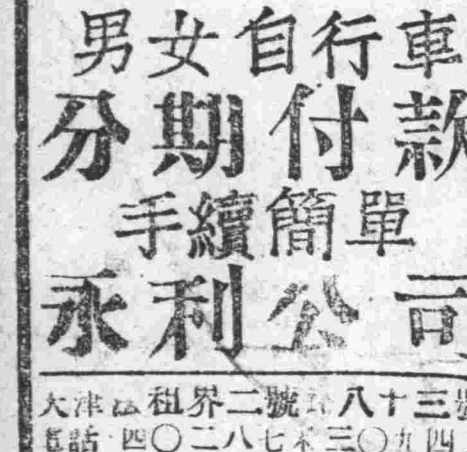 男女自行車
分期付款
手續簡單
永利公司
天津法租界二號路八十三號
電話 四〇二八七 三〇九四